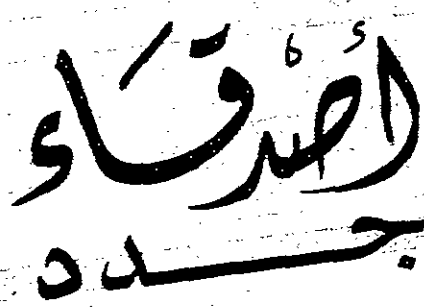 أصْدقَاء
جدد